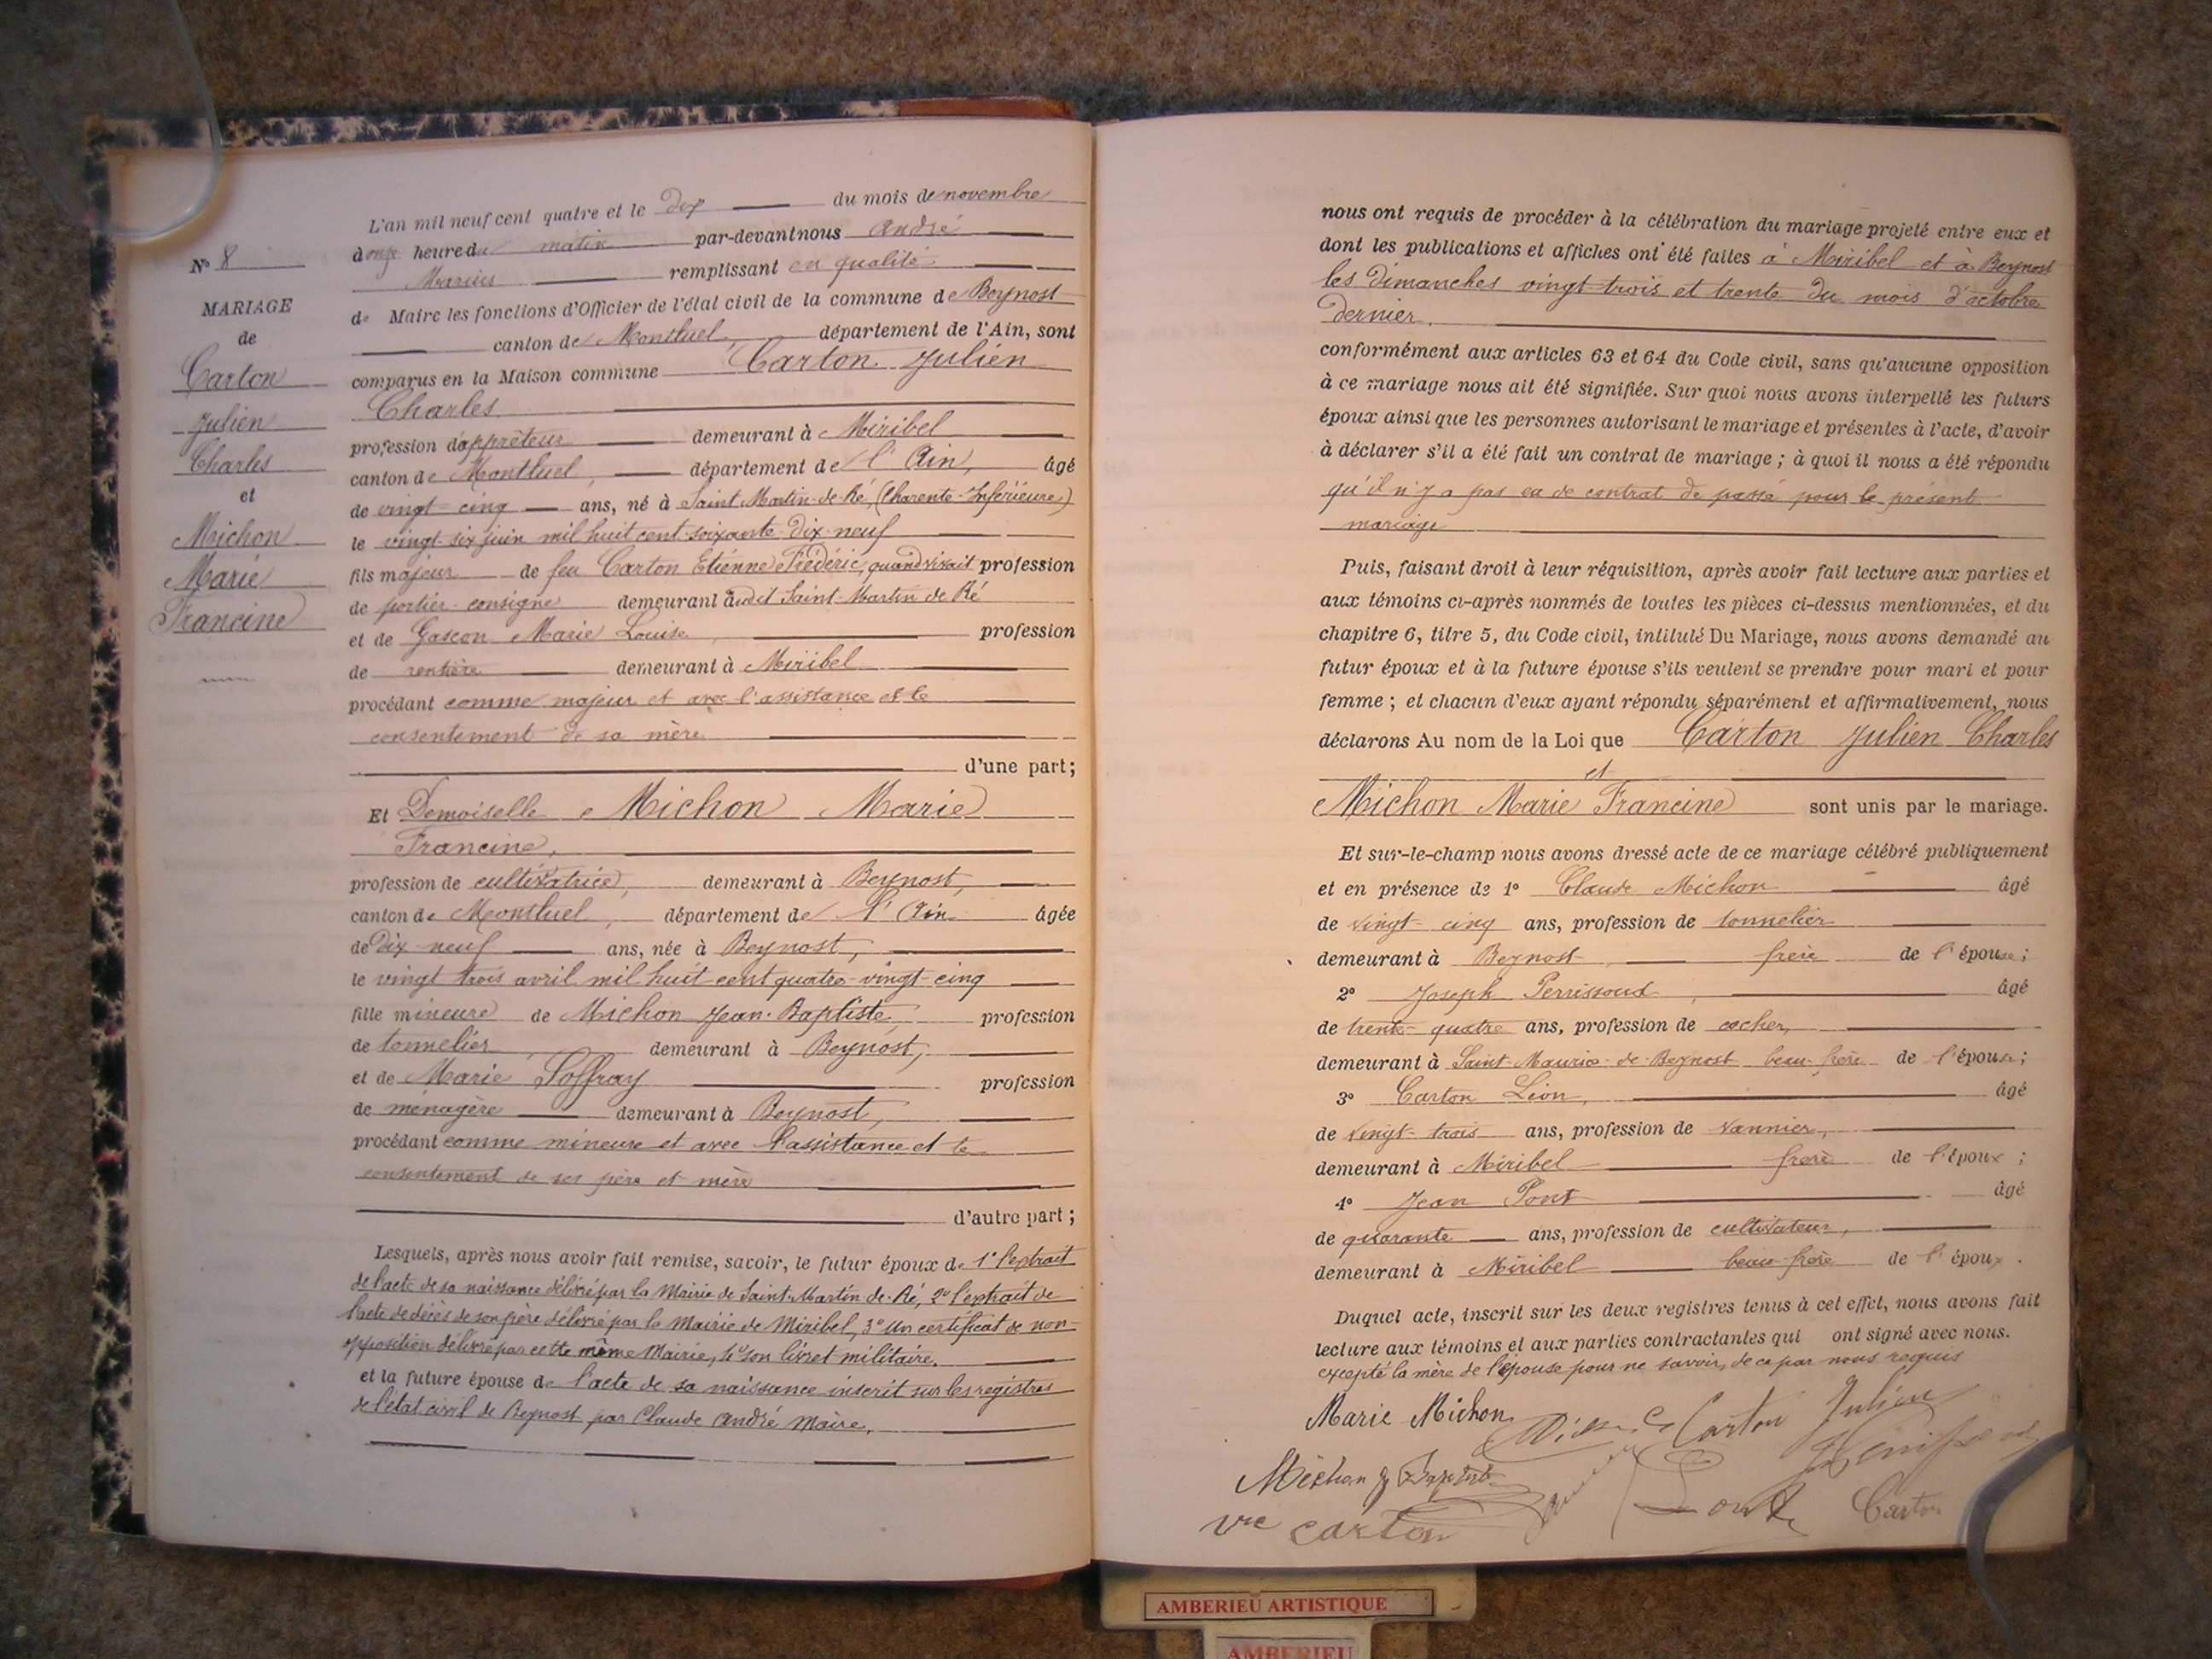 N° 8
MARIAGE
de
Carton
Julien
Charles
et
Michon
Marie
Francine
L'an mil neuf cent quatre et le dix du mois de novembre
à onze heure du matin par-devant nous André
Marius remplissant en qualité
de Maire les fonctions d'Officier de l'état civil de la commune de Beynost
canton de Montluel département de l'Ain, sont
comparus en la Maison commune Carton Julien
Charles
profession d'apprêteur demeurant à Miribel
canton de Montluel, département de l'Ain, âgé
de vingt-cinq ans, né à Saint Martin-de-Ré, (Charente-Inférieure)
le vingt-six juin mil huit cent soixante-dix-neuf
fils majeur de feu Carton Etienne Frédéric, quand vivait profession
de portier-consigne demeurant audit Saint-Martin de Ré
et de Gascon Marie Louise, profession
de rentière demeurant à Miribel
procédant comme majeur et avec l'assistance et le
consentement de sa mère
d'une part;
Et Demoiselle Michon Marie
Francine,
profession de cultivatrice, demeurant à Beynost,
canton de Montluel, département de l'Ain âgée
de dix-neuf ans, née à Beynost,
le vingt trois avril mil huit cent quatre-vingt-cinq
fille mineure de Michon Jean-Baptiste, profession
de tonnelier demeurant à Beynost,
et de Marie Soffray profession
de ménagère demeurant à Beynost,
procédant comme mineure et avec l'assistance et le
consentement de ses père et mère
d'autre part;
Lesquels, après nous avoir fait remise, savoir, le futur époux de 1° l'extrait
de l'acte de sa naissance délivré par la Mairie de Saint-Martin-de-Ré, 2° l'extrait de
l'acte de décès de son père délivré par la Mairie de Miribel, 3° un certificat de non-
opposition délivré par cette même Mairie, 4° son livret militaire.
et la future épouse de l'acte de sa naissance inscrit sur les registres
de l'état civil de Beynost par Claude André Maire.
nous ont requis de procéder à la célébration du mariage projeté entre eux et
dont les publications et affiches ont été faites à Miribel et à Beynost
les dimanches vingt-trois et trente du mois d'octobre
dernier.
conformément aux articles 63 et 64 du Code civil, sans qu'aucune opposition
à ce mariage nous ait été signifiée. Sur quoi nous avons interpellé les futurs
époux ainsi que les personnes autorisant le mariage et présentes à l'acte, d'avoir
à déclarer s'il a été fait un contrat de mariage; à quoi il nous a été répondu
qu'il n'y a pas eu de contrat de passé pour le présent
mariage
Puis, faisant droit à leur réquisition, après avoir fait lecture aux parties et
aux témoins ci-après nommés de toutes les pièces ci-dessus mentionnées, et du
chapitre 6, titre 5, du Code civil, intitulé Du Mariage, nous avons demandé au
futur époux et à la future épouse s'ils veulent se prendre pour mari et pour
femme; et chacun d'eux ayant répondu séparément et affirmativement, nous
déclarons Au nom de la Loi que Carton Julien Charles
et
Michon Marie Francine sont unis par le mariage.
Et sur-le-champ nous avons dressé acte de ce mariage célébré publiquement
et en présence de 1° Claude Michon âgé
de vingt-cinq ans, profession de tonnelier
demeurant à Beynost frère de l'épouse;
2° Joseph Perrissoud, âgé
de trente-quatre ans, profession de cocher,
demeurant à Saint-Maurice-de-Beynost beau-frère de l'épouse;
3° Carton Léon, âgé
de vingt-trois ans, profession de vannier,
demeurant à Miribel frère de l'époux;
4° Jean Pont âgé
de quarante ans, profession de cultivateur,
demeurant à Miribel beau-frère de l'époux.
Duquel acte, inscrit sur les deux registres tenus à cet effet, nous avons fait
lecture aux témoins et aux parties contractantes qui ont signé avec nous.
excepté la mère de l'épouse pour ne savoir, de ce par nous requis
Marie Michon
Carton Julien
Michon J Baptiste
Carton
Vve Carton
AMBERIEU ARTISTIQUE
AMBERIEU